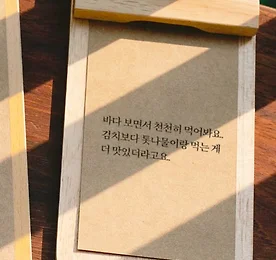 바다 보면서 천천히 먹어봐요.
김치보다 톳나물이랑 먹는 게
더 맛있더라고요.